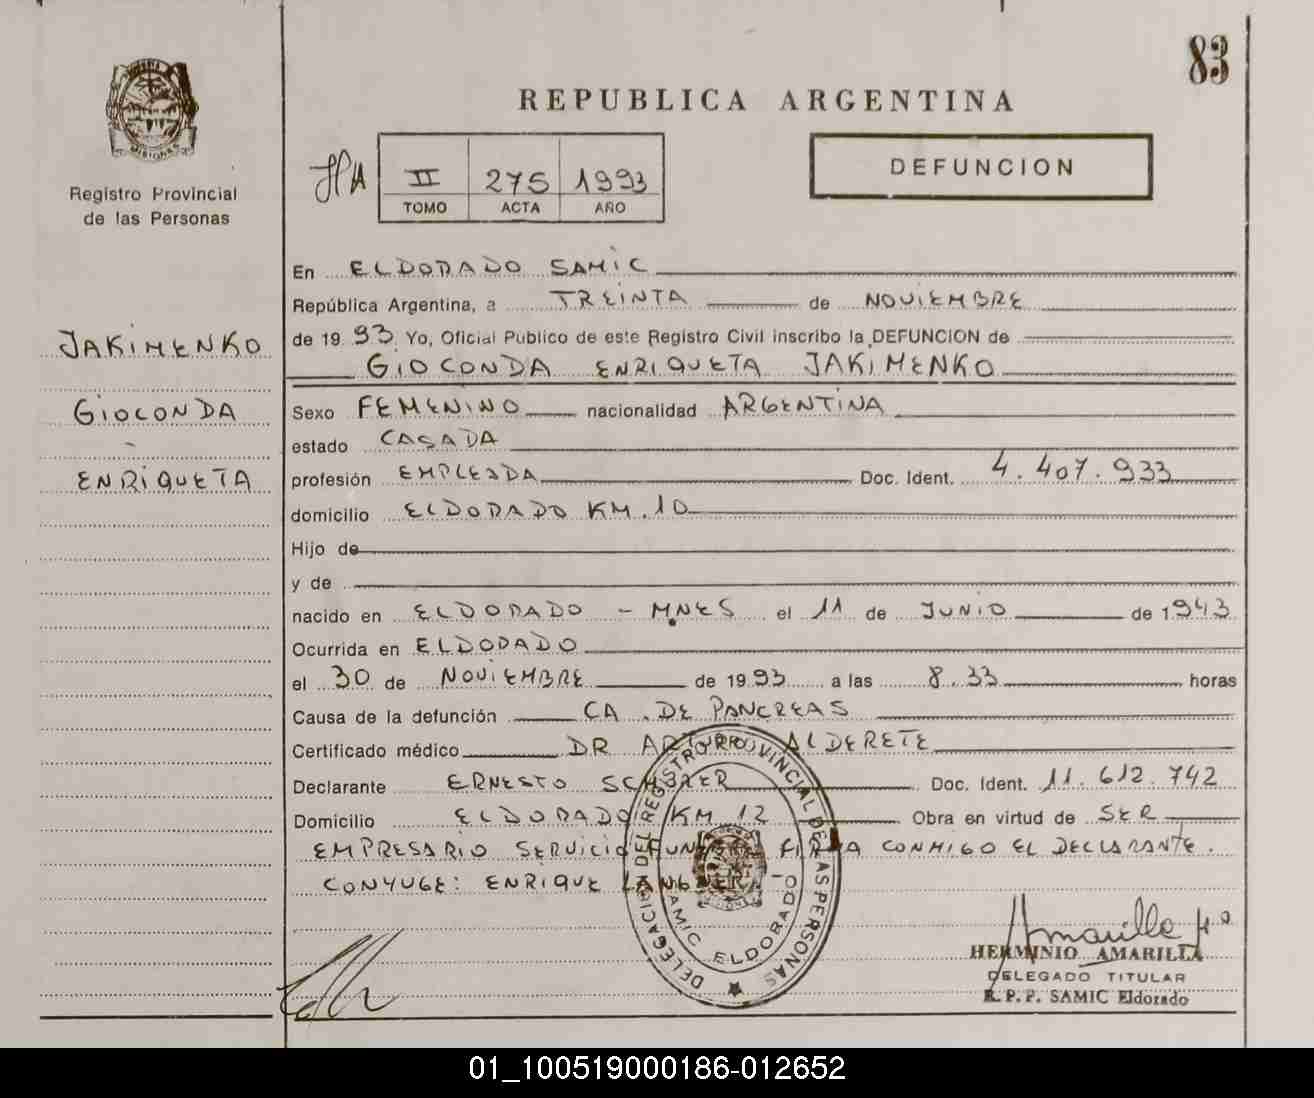 83
REPUBLICA ARGENTINA
MISIONES
Registro Provincial
de las Personas
II 275 1993
TOMO ACTA AÑO
DEFUNCION
JAKIMENKO
GIOCONDA
ENRIQUETA
En ELDORADO SAMIC
República Argentina, a TREINTA de NOVIEMBRE
de 1993 Yo, Oficial Publico de este Registro Civil inscribo la DEFUNCION de
GIOCONDA ENRIQUETA JAKIMENKO
Sexo FEMENINO nacionalidad ARGENTINA
estado CASADA
profesión EMPLEADA Doc. Ident. 4.407.933
domicilio ELDORADO KM.10
Hijo de
y de
nacido en ELDORADO - MNES el 11 de JUNIO de 1943
Ocurrida en ELDORADO
el 30 de NOVIEMBRE de 1993 a las 8.33 horas
Causa de la defunción CA. DE PANCREAS
Certificado médico DR ARTURO ALDERETE
Declarante ERNESTO Doc. Ident. 11.612.742
Domicilio ELDORADO KM 12 Obra en virtud de SER
EMPRESARIO SERVICIO FIRMA CONMIGO EL DECLARANTE.
CONYUGE: ENRIQUE
DELEGACION DEL REGISTRO PROVINCIAL DE LAS PERSONAS
SAMIC ELDORADO
HERMINIO AMARILLA
DELEGADO TITULAR
R. P. P. SAMIC Eldorado
01_100519000186-012652